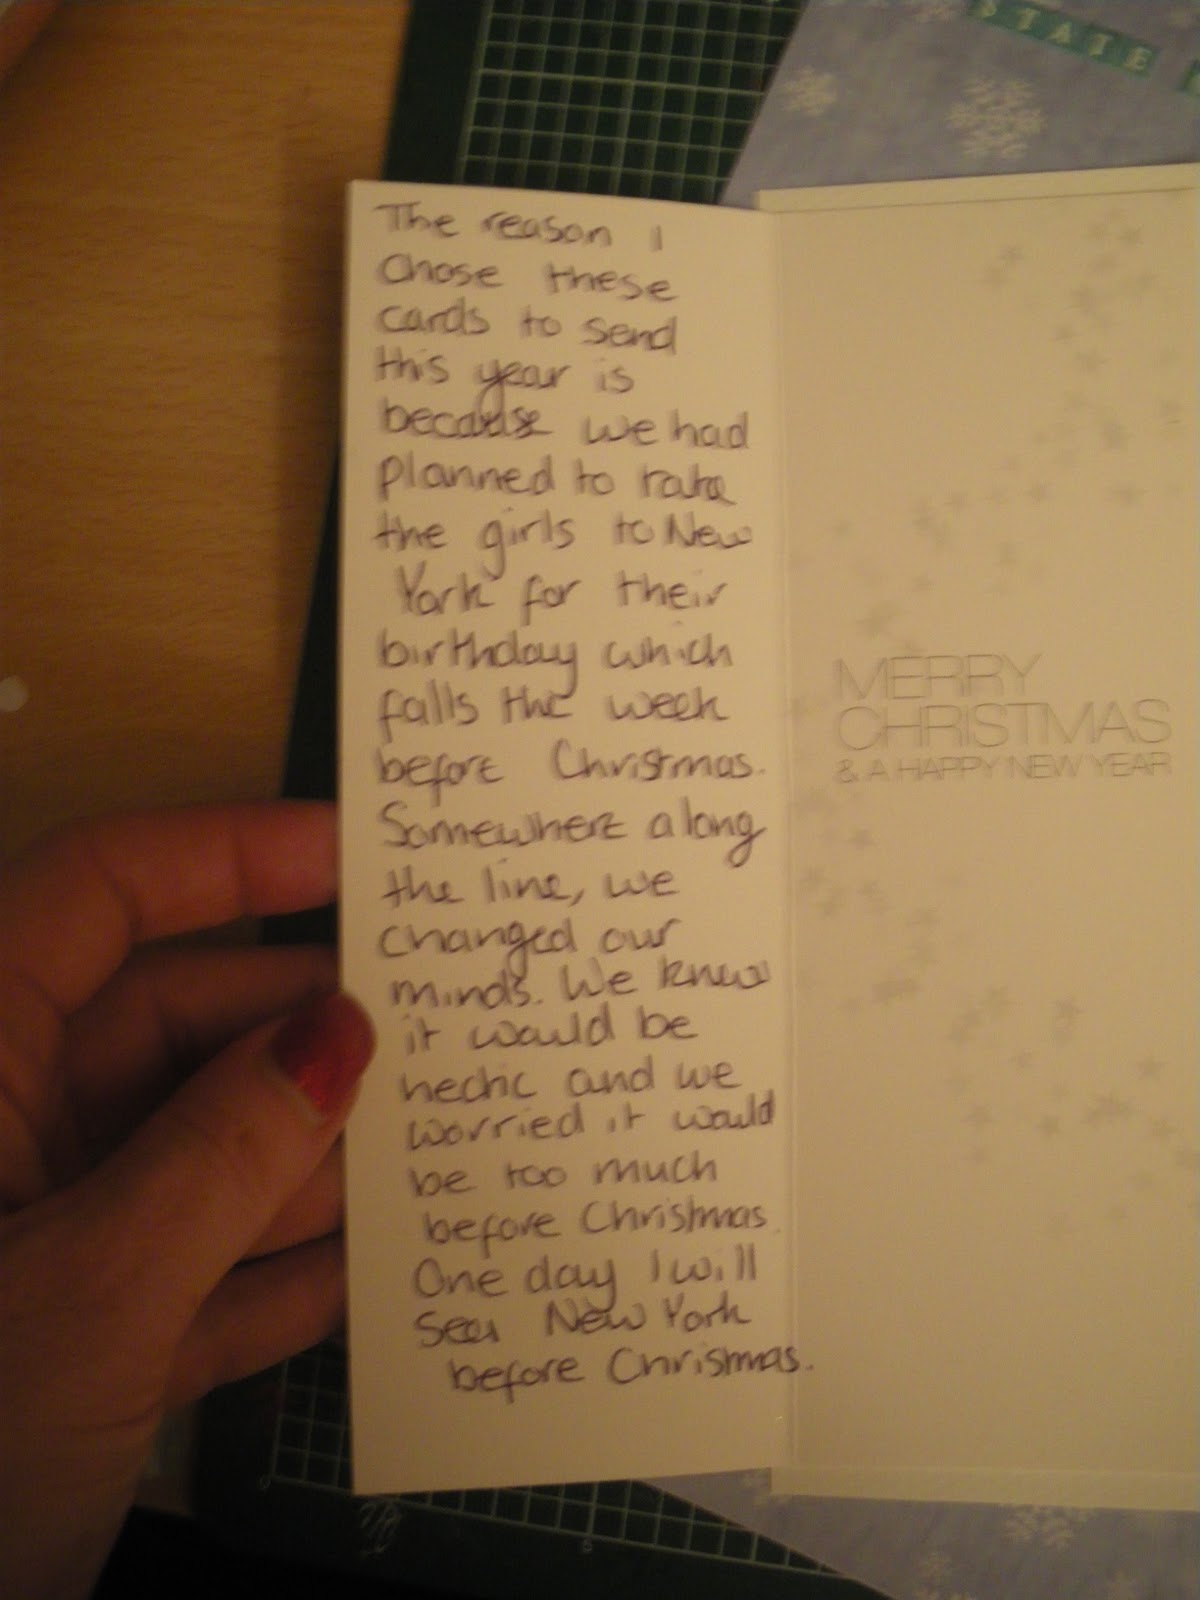 STATE
The reason I
chose these
cards to send
this year is
because we had
planned to take
the girls to New
York for their
birthday which
falls the week
before Christmas.
Somewhere along
the line, we
changed our
minds. We knew
it would be
hectic and we
worried it would
be too much
before Christmas.
One day I will
see New York
before Christmas.
MERRY
CHRISTMAS
& A HAPPY NEW YEAR